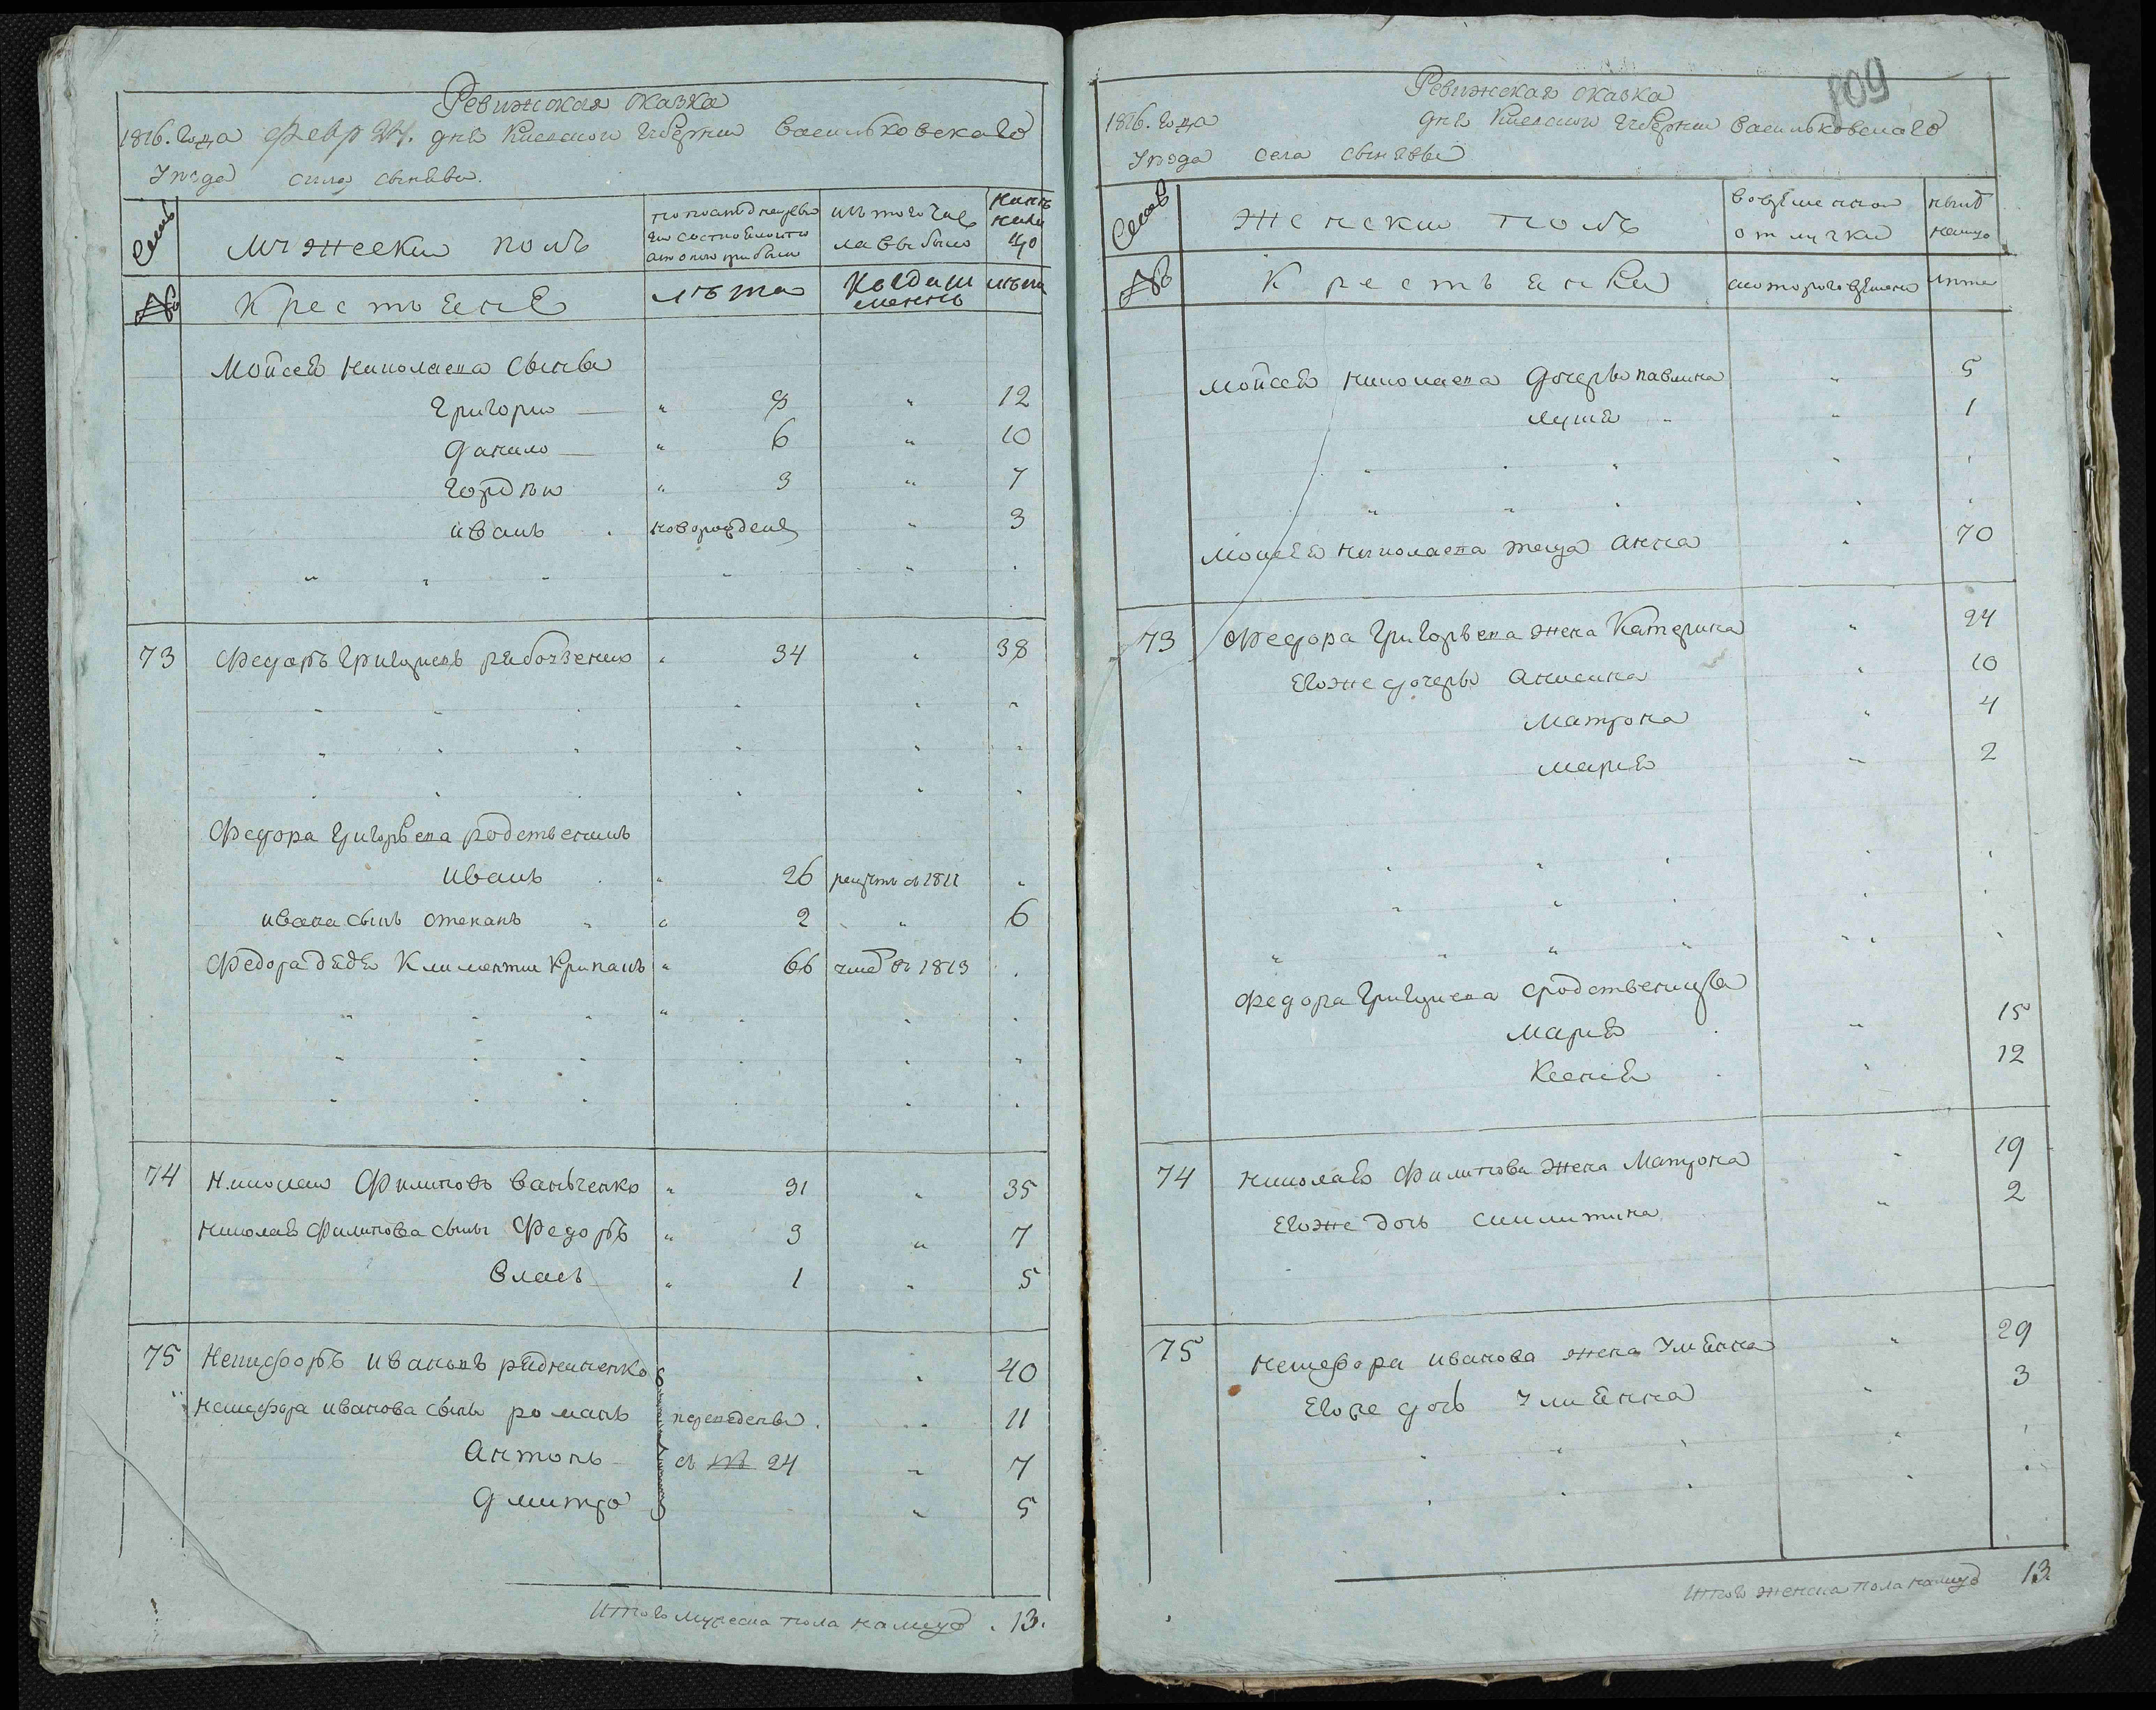 Ревижская сказка
1816. года февр 24. дня Киевской губернии Васильковскаго
Уѣзда села Сынявы
Семьи
мужески полъ
по последней ревизии состояло и после оной прибыло
изъ того числа выбыло
нынѣ на лицо
№
Крестьяне
лѣта
когда именно
лѣта
Мойсея Николаева Сынъвя
Григорий " 8 " 12
Данило " 6 " 10
Гордѣй " 3 " 7
Иванъ новорожденъ " 3
73 Федоръ Григориевъ рабочѣнко " 34 " 38
Федора Григорьева родственикъ
Иванъ " 26 рекрутъ въ 1811 "
Ивана сынъ Степанъ " 2 " 6
Федора дядя Климентий Крипакъ " 66 умеръ въ 1813
74 Николай Филиповъ Ванченко " 31 " 35
Николая Филипова сынъ Федоръ " 3 " 7
Власъ " 1 " 5
75 Никифоръ Ивановъ редниченко " 40
Никифора Иванова сынъ романъ переведены " 11
Антонъ съ № 24 " 7
Дмитро " 5
Итого мужеска пола налицо 13.
109
Ревижская сказка
1816. года дня Киевской губернии Васильковскаго
Уѣзда села Сынявы
Семьи
Женски полъ
во временной отлучки
нынѣ налицо
№
Крестьянки
с котораго времени
лѣта
Мойсея Николаева дочеръ павлина " 5
луция " 1
Мойсея Николаева теща Анна " 70
73 Федора Григорьева жена Катерина " 24
Его же дочеръ Анисика " 10
Матрона " 4
Мария " 2
Федора Григориева сродственицы
Мария " 15
Ксения " 12
74 Николая Филипова жена Матрона " 19
Его же дочь " 2
75 Никифора Иванова жена Улияна " 29
Его же дочь Улиянна " 3
Итого женска пола налицо 13.